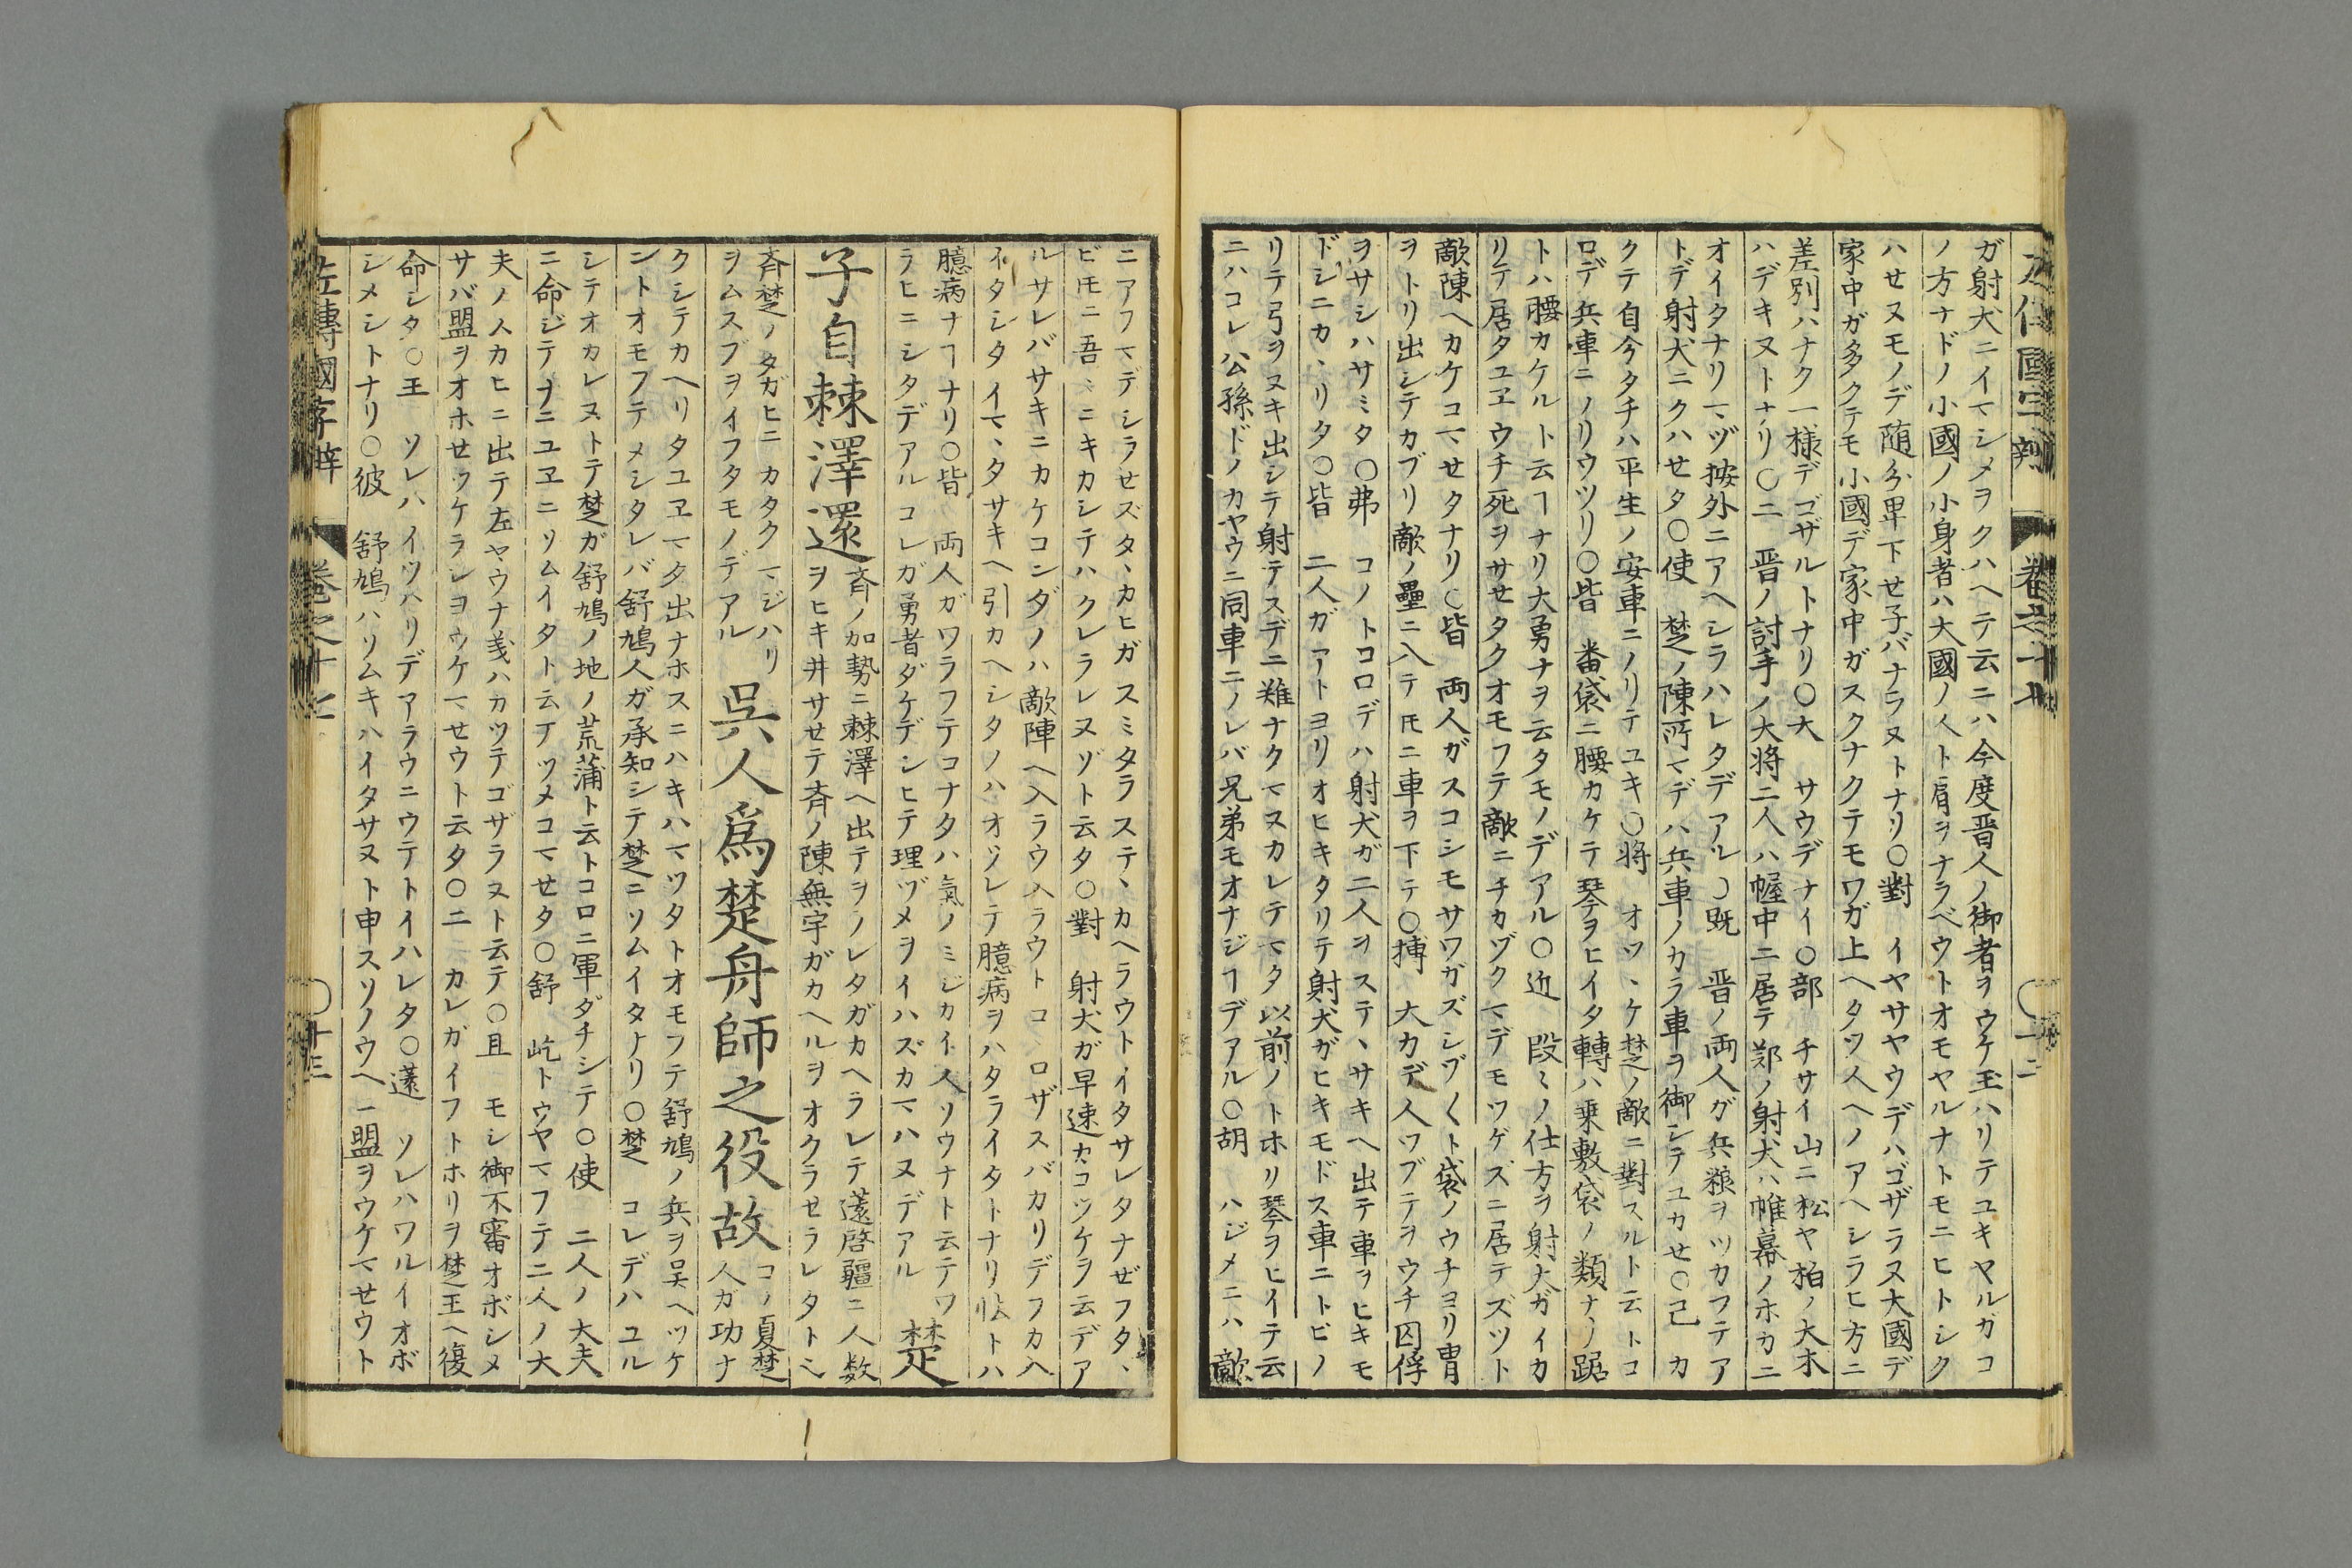 左傳國字辨 卷之十七 〇十二
ガ射犬ニイマシメヲクハヘテ云ニハ今度晋人ノ御者ヲウケ玉ハリテユキヤルガコ
ノ方ナドノ小國ノ小身者ハ大國ノ人ト肩ヲナラベウトオモヤルナトモニヒトシク
ハせヌモノデ随分卑下せ子バナラヌトナリ〇對 イヤサヤウデハゴザラヌ大國デ
家中ガ多クテモ小國デ家中ガスクナクテモワガ上ヘタツ人ヘノアヘシラヒ方ニ
差別ハナク一様デゴザルトナリ〇大 サウデナイ〇部 チサイ山ニ松ヤ柏ノ大木
ハデキヌトナリ〇二 晋ノ討手ノ大将二人ハ幄中ニ居テ郑ノ射犬ハ帷幕ノホカニ
オイタナリマヅ按外ニアヘシラハレタデアル〇既 晋ノ両人ガ兵粮ヲツカフテア
トデ射犬ニクハせタ〇使 楚ノ陳所マデハ兵車ノカラ車ヲ御シテユカせ〇己 カ
クテ自今タチハ平生ノ安車ニノリテユキ〇将 オツヽケ楚ノ敵ニ對スルト云トコ
ロデ兵車ニノリウツリ〇皆 番袋ニ腰カケテ琴ヲヒイタ轉ハ乗敷袋ノ類ナリ踞
トハ腰カケルト云ヿナリ大勇ナヲ云タモノデアル〇近 段〻ノ仕方ヲ射犬ガイカ
リテ居タユヱウチ死ヲサせタクオモフテ敵ニチカヅクマデモツゲズニ居テズツト
敵陳ヘカケコマせタナリ〇皆 両人ガスコシモサワガズシヅ〱ト袋ノウチヨリ冑
ヲトリ出シテカブリ敵ノ壘ニ入テ𪜈ニ車ヲ下テ〇搏 大カデ人ツブテヲウチ囚俘
ヲサシハサミタ〇弗 コノトコロデハ射犬ガ二人ヲステヽサキヘ出テ車ヲヒキモ
ドシニカヽリタ〇皆 二人ガアトヨリオヒキタリテ射犬ガヒキモドス車ニトビノ
リテ弓ヲヌキ出シテ射テスデニ難ナクマヌカレテマタ以前ノトホリ琴ヲヒイテ云
ニハコレ公孫ドノカヤウニ同車ニノレバ兄弟モオナジヿデアル〇胡 ハジメニハ敵
ニアフマデシラせズタヽカヒガスミタラステヽカヘラウトイタサレタナぜフタヽ
ビ𪜈ニ吾〻ニキカシテハクレラレヌゾト云タ〇對 射犬ガ早速カコツケヲ云デア
ルサレバサキニカケコンダノハ敵陣ヘ入ラウハラウトコヽロザスバカリデフカ入
イタシタイマヽタサキヘ引カヘシタノハオゾレテ臆病ヲハタライタトナリ㤼トハ
臆病ナヿナリ〇皆 両人ガワラフテコナタハ氣ノミジカイ人ソウナト云テワ
ラヒニシタデアルコレガ勇者ダケデシヒテ理ヅメヲイハズカマハヌデアル 楚
子自棘澤還 斉ノ加勢ニ棘澤ヘ出テヲノレタガカヘラレテ薳啓疆ニ人数
ヲヒキ井サせテ斉ノ陳無宇ガカヘルヲオクラせラレタトヘ
斉楚ノタガヒニカタクマジハリ
ヲムスブヲイフタモノデアル 呉人爲楚舟師之役故 コノ夏楚
人ガ功ナ
クシテカヘリタユヱマタ出ナホスニハキハマツタトオモフテ舒鳩ノ兵ヲ呉ヘツケ
ントオモフテメシタレバ舒鳩人ガ承知シテ楚ニソムイタナリ〇楚 コレデハユル
シテオカレヌトテ楚ガ舒鳩ノ地ノ荒蒲ト云トコロニ軍ダチシテ〇使 二人ノ大夫
ニ命ジテナニユヱニソムイタト云テツメコマせタ〇舒 屹トウヤマフテ二人ノ大
夫ノムカヒニ出テ左ヤウナ義ハカツテゴザラヌト云テ〇且 モシ御不審オボシメ
サバ盟ヲオホせツケラレヨウケマせウト云タ〇二 カレガイフトホリヲ楚王ヘ復
命シタ〇王 ソレハイツハリデアラウニウテトイハレタ〇薳 ソレハワルイオボ
シメシトナリ〇彼 舒鳩ハソムキハイタサヌト申スソノウヘ一盟ヲウケマせウト
左傳國字辨 卷之十七 〇十三